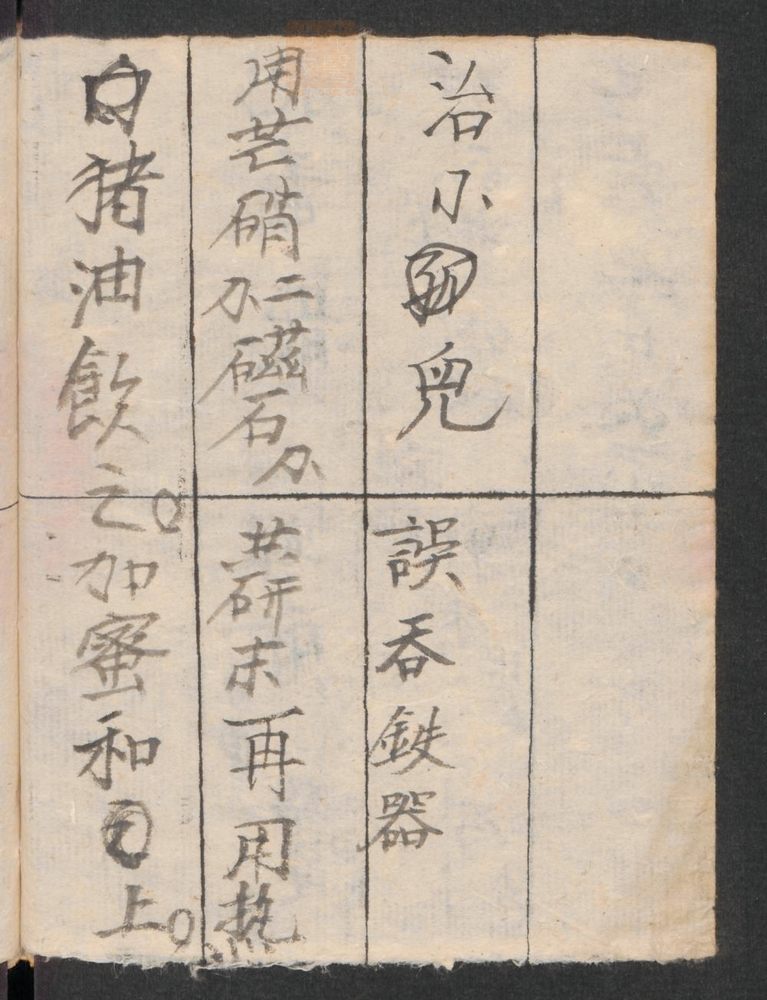 治小兒誤吞鉄器
用芒硝二磁石共研末再用熱
猪油飲之。加蜜和上。